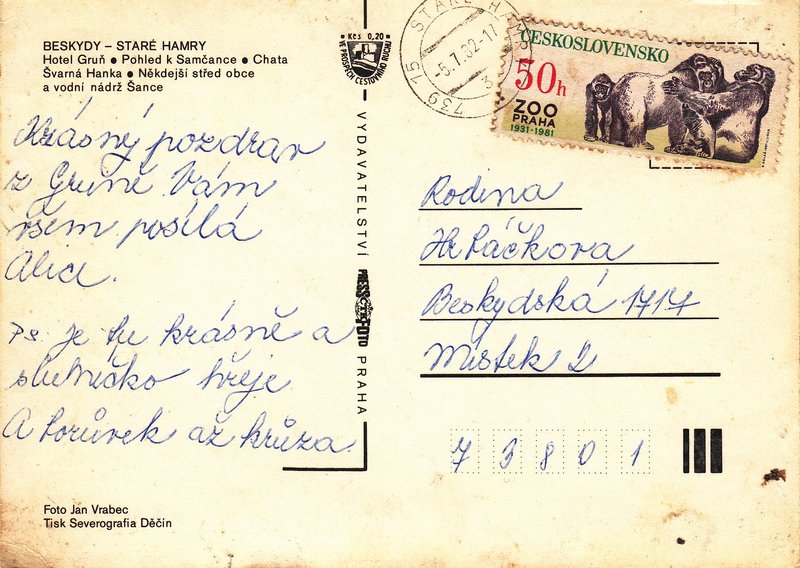 BESKYDY – STARÉ HAMRY
Hotel Gruň • Pohled k Samčance • Chata
Švarná Hanka • Někdejší střed obce
a vodní nádrž Šance
Krásný pozdrav
z Gruně Vám
všem posílá
Alice.
Ps. je tu krásně a
sluníčko hřeje
A borůvek až hrůza.
Foto Jan Vrabec
Tisk Severografia Děčín
Kčs 0,20
VE PROSPĚCH CESTOVNÍHO RUCHU
VYDAVATELSTVÍ
PRESSFOTO
PRAHA
STARÉ HAMRY
-5.7.82-17
3
739 15
ČESKOSLOVENSKO
50h
ZOO
PRAHA
1931-1981
Rodina
Hrbáčkova
Beskydská 1717
Místek 2
73801